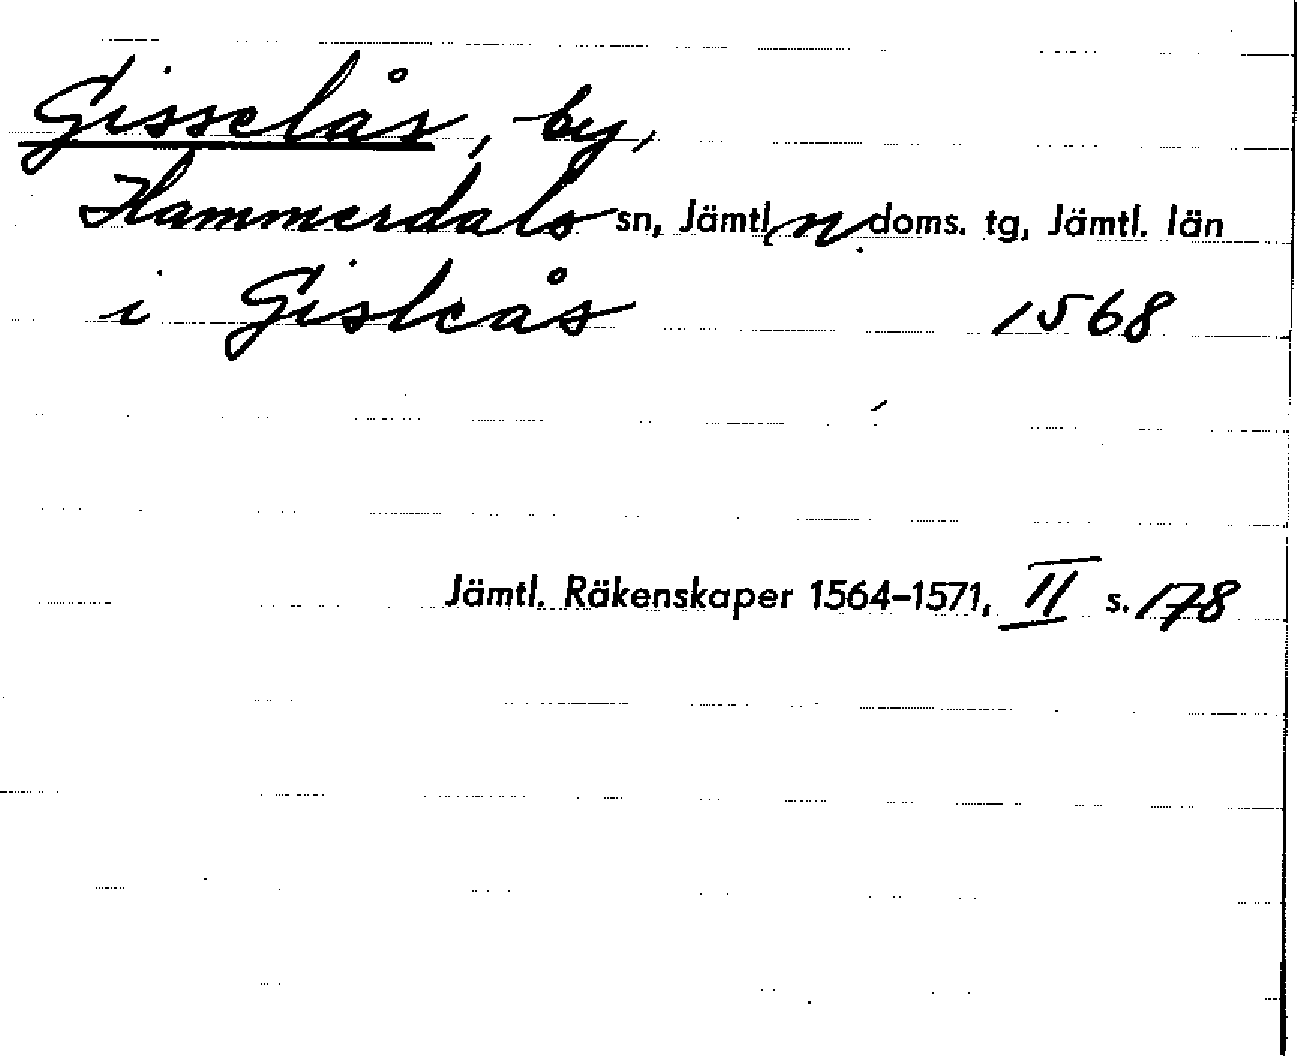 Gisselås, by,
Hammerdals sn, Jämtl. n. doms. tg, Jämtl. län
i Gisleås 1568
Jämtl. Räkenskaper 1564–1571, II s. 178